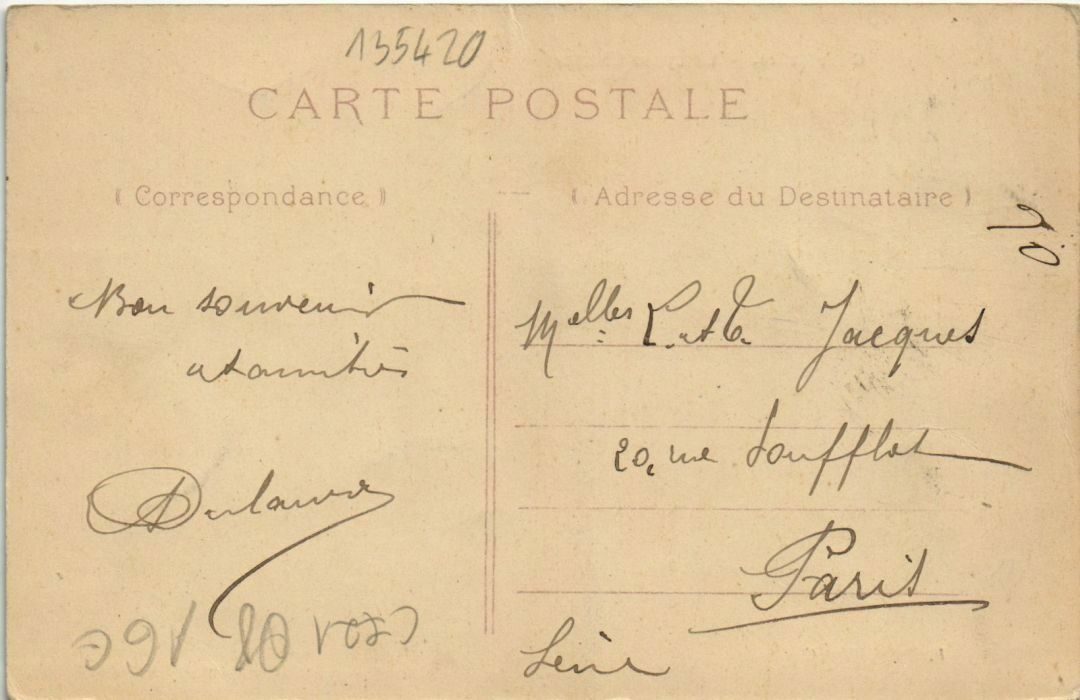 135420
CARTE POSTALE
( Correspondance )
( Adresse du Destinataire )
Bon souvenir
et amitiés
Melles L. et C. Jacques
20, rue Soufflot
Paris
Seine